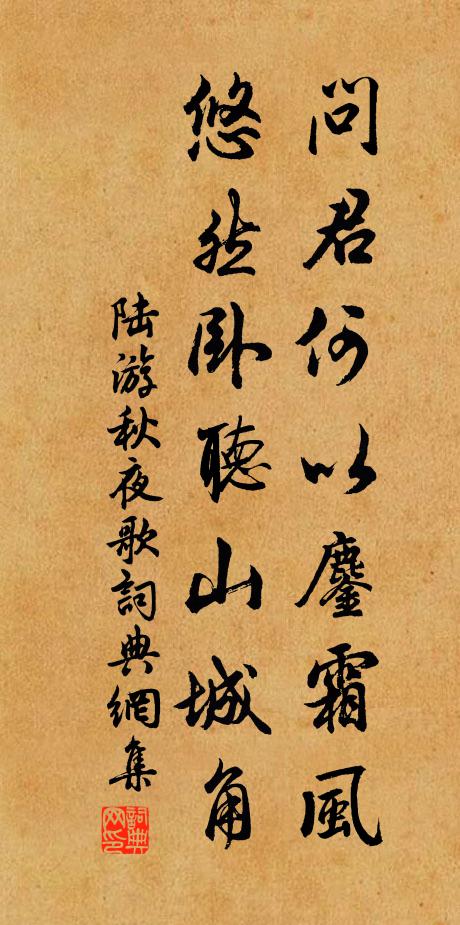 問君何以鏖霜風
悠然卧聽山城角
陆游秋夜歌詞典網集
詞典网印